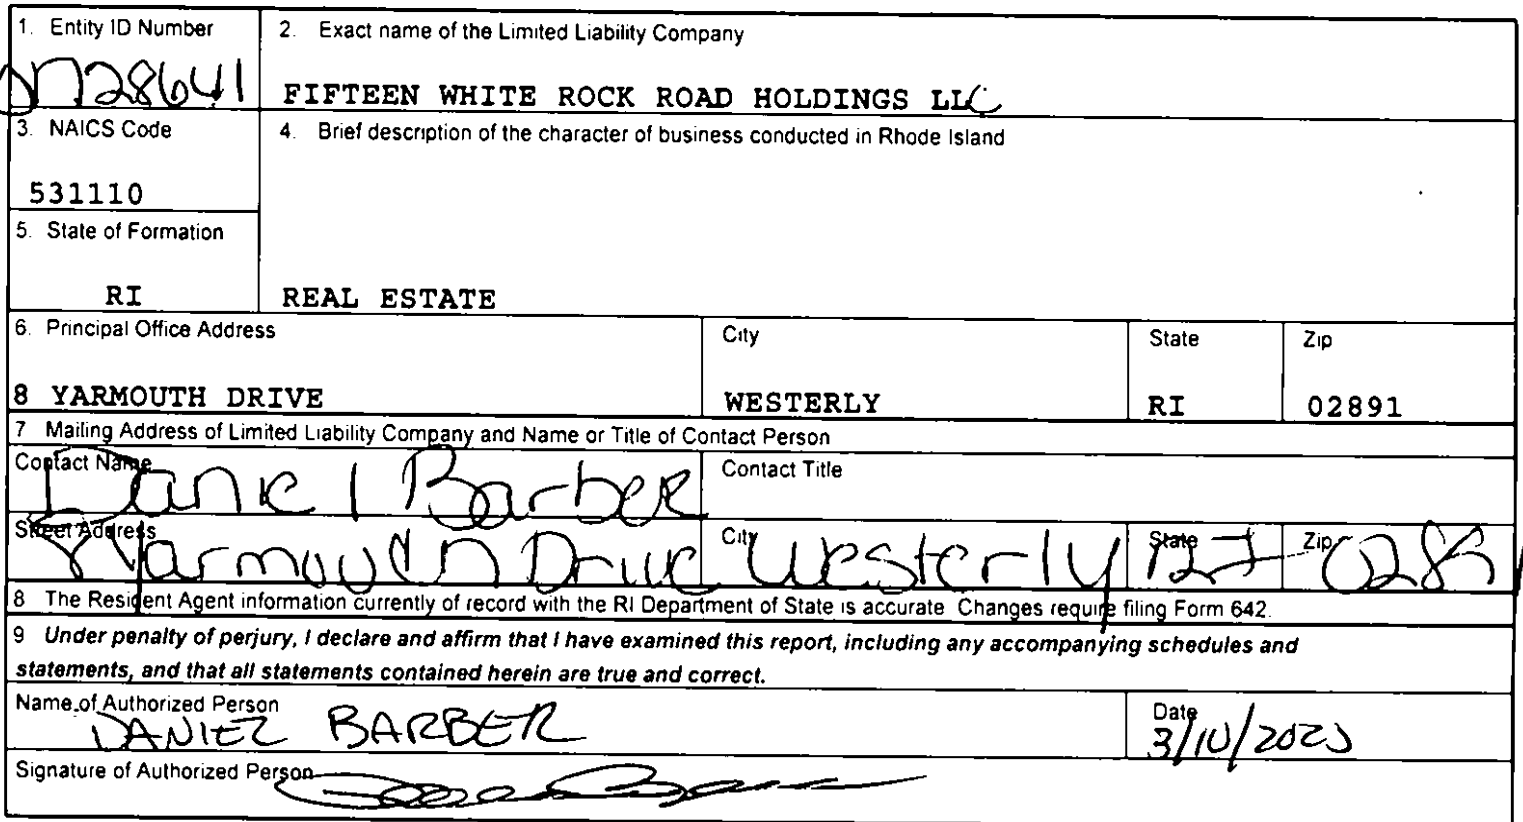 1. Entity ID Number
2. Exact name of the Limited Liability Company
FIFTEEN WHITE ROCK ROAD HOLDINGS LLC
3. NAICS Code
4. Brief description of the character of business conducted in Rhode Island
531110
5. State of Formation
RI
REAL ESTATE
6. Principal Office Address
City
State
Zip
8 YARMOUTH DRIVE
WESTERLY
RI
02891
7 Mailing Address of Limited Liability Company and Name or Title of Contact Person
Contact Name
Daniel Barber
Contact Title
Street Address
8 Yarmouth Drive
City
Westerly
State
RI
Zip
8 The Resident Agent information currently of record with the RI Department of State is accurate Changes require filing Form 642.
9 Under penalty of perjury, I declare and affirm that I have examined this report, including any accompanying schedules and
statements, and that all statements contained herein are true and correct.
Name of Authorized Person
DANIEL BARBER
Date
Signature of Authorized Person